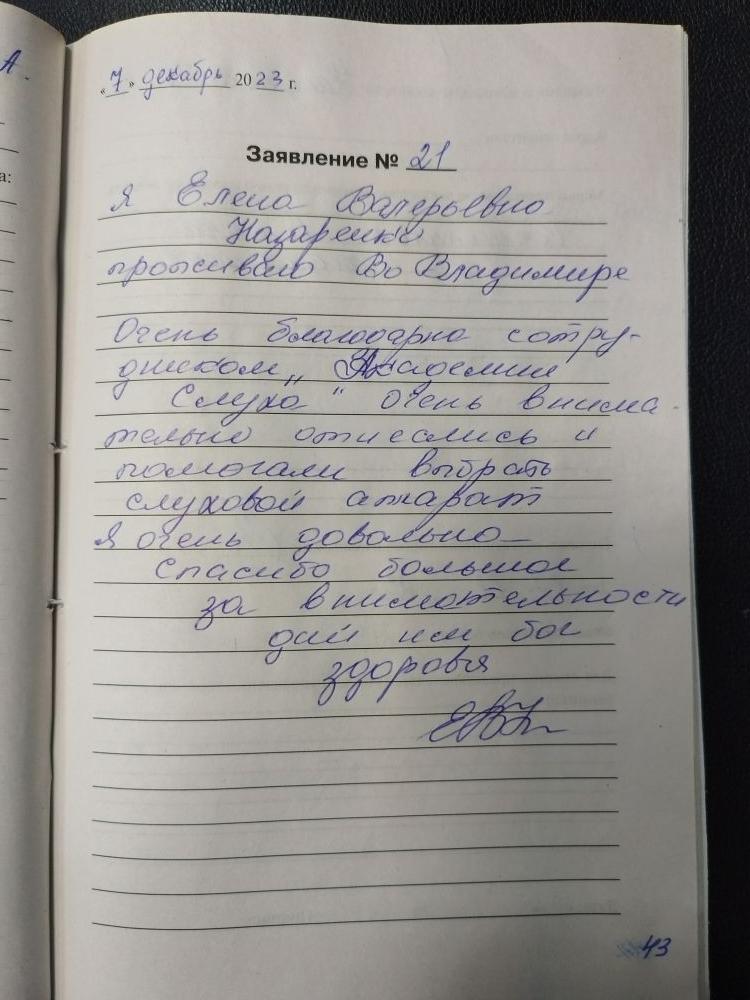 А.
а:
«7» декабрь 2023 г.
Заявление № 21
Я Елена Валерьевна
Назаренко
проживаю Во Владимире
Очень благодарна сотру-
дникам „Академии
Слуха" очень внима-
тельно отнеслись и
помогали выбрать
слуховой аппарат
Я очень довольна
Спасибо большое
за внимательности
дай им бог
здоровья
ЕВН
43